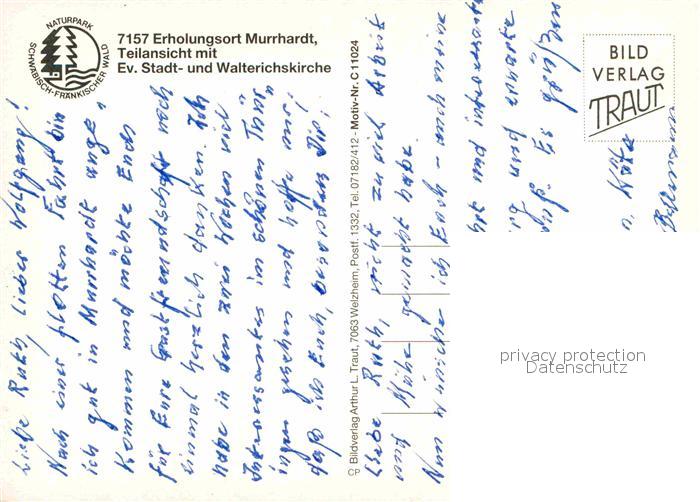 NATURPARK
SCHWÄBISCH-FRÄNKISCHER WALD
7157 Erholungsort Murrhardt,
Teilansicht mit
Ev. Stadt- und Walterichskirche
BILD
VERLAG
TRAUT
Liebe Ruth, lieber Wolfgang!
Nach einer flotten Fahrt bin
ich gut in Murrhardt ange-
kommen und möchte Euch
für Eure Gastfreundschaft noch
einmal herzlich danken. Ich
habe in den zwei Wochen viel
Interessantes im schönen Thür
ingen gesehen und hoffe nur
daß ich Euch, besonders Dir!
CP Bildverlag Arthur L. Traut, 7063 Welzheim, Postf. 1332, Tel. 07182/412 - Motiv-Nr. C 11024
Liebe Ruth, nicht zu viel Arbeit
und Mühe gemacht habe.
Nun wünsche ich Euch
und interessante
und
Es grüß
Käte
privacy protection
Datenschutz